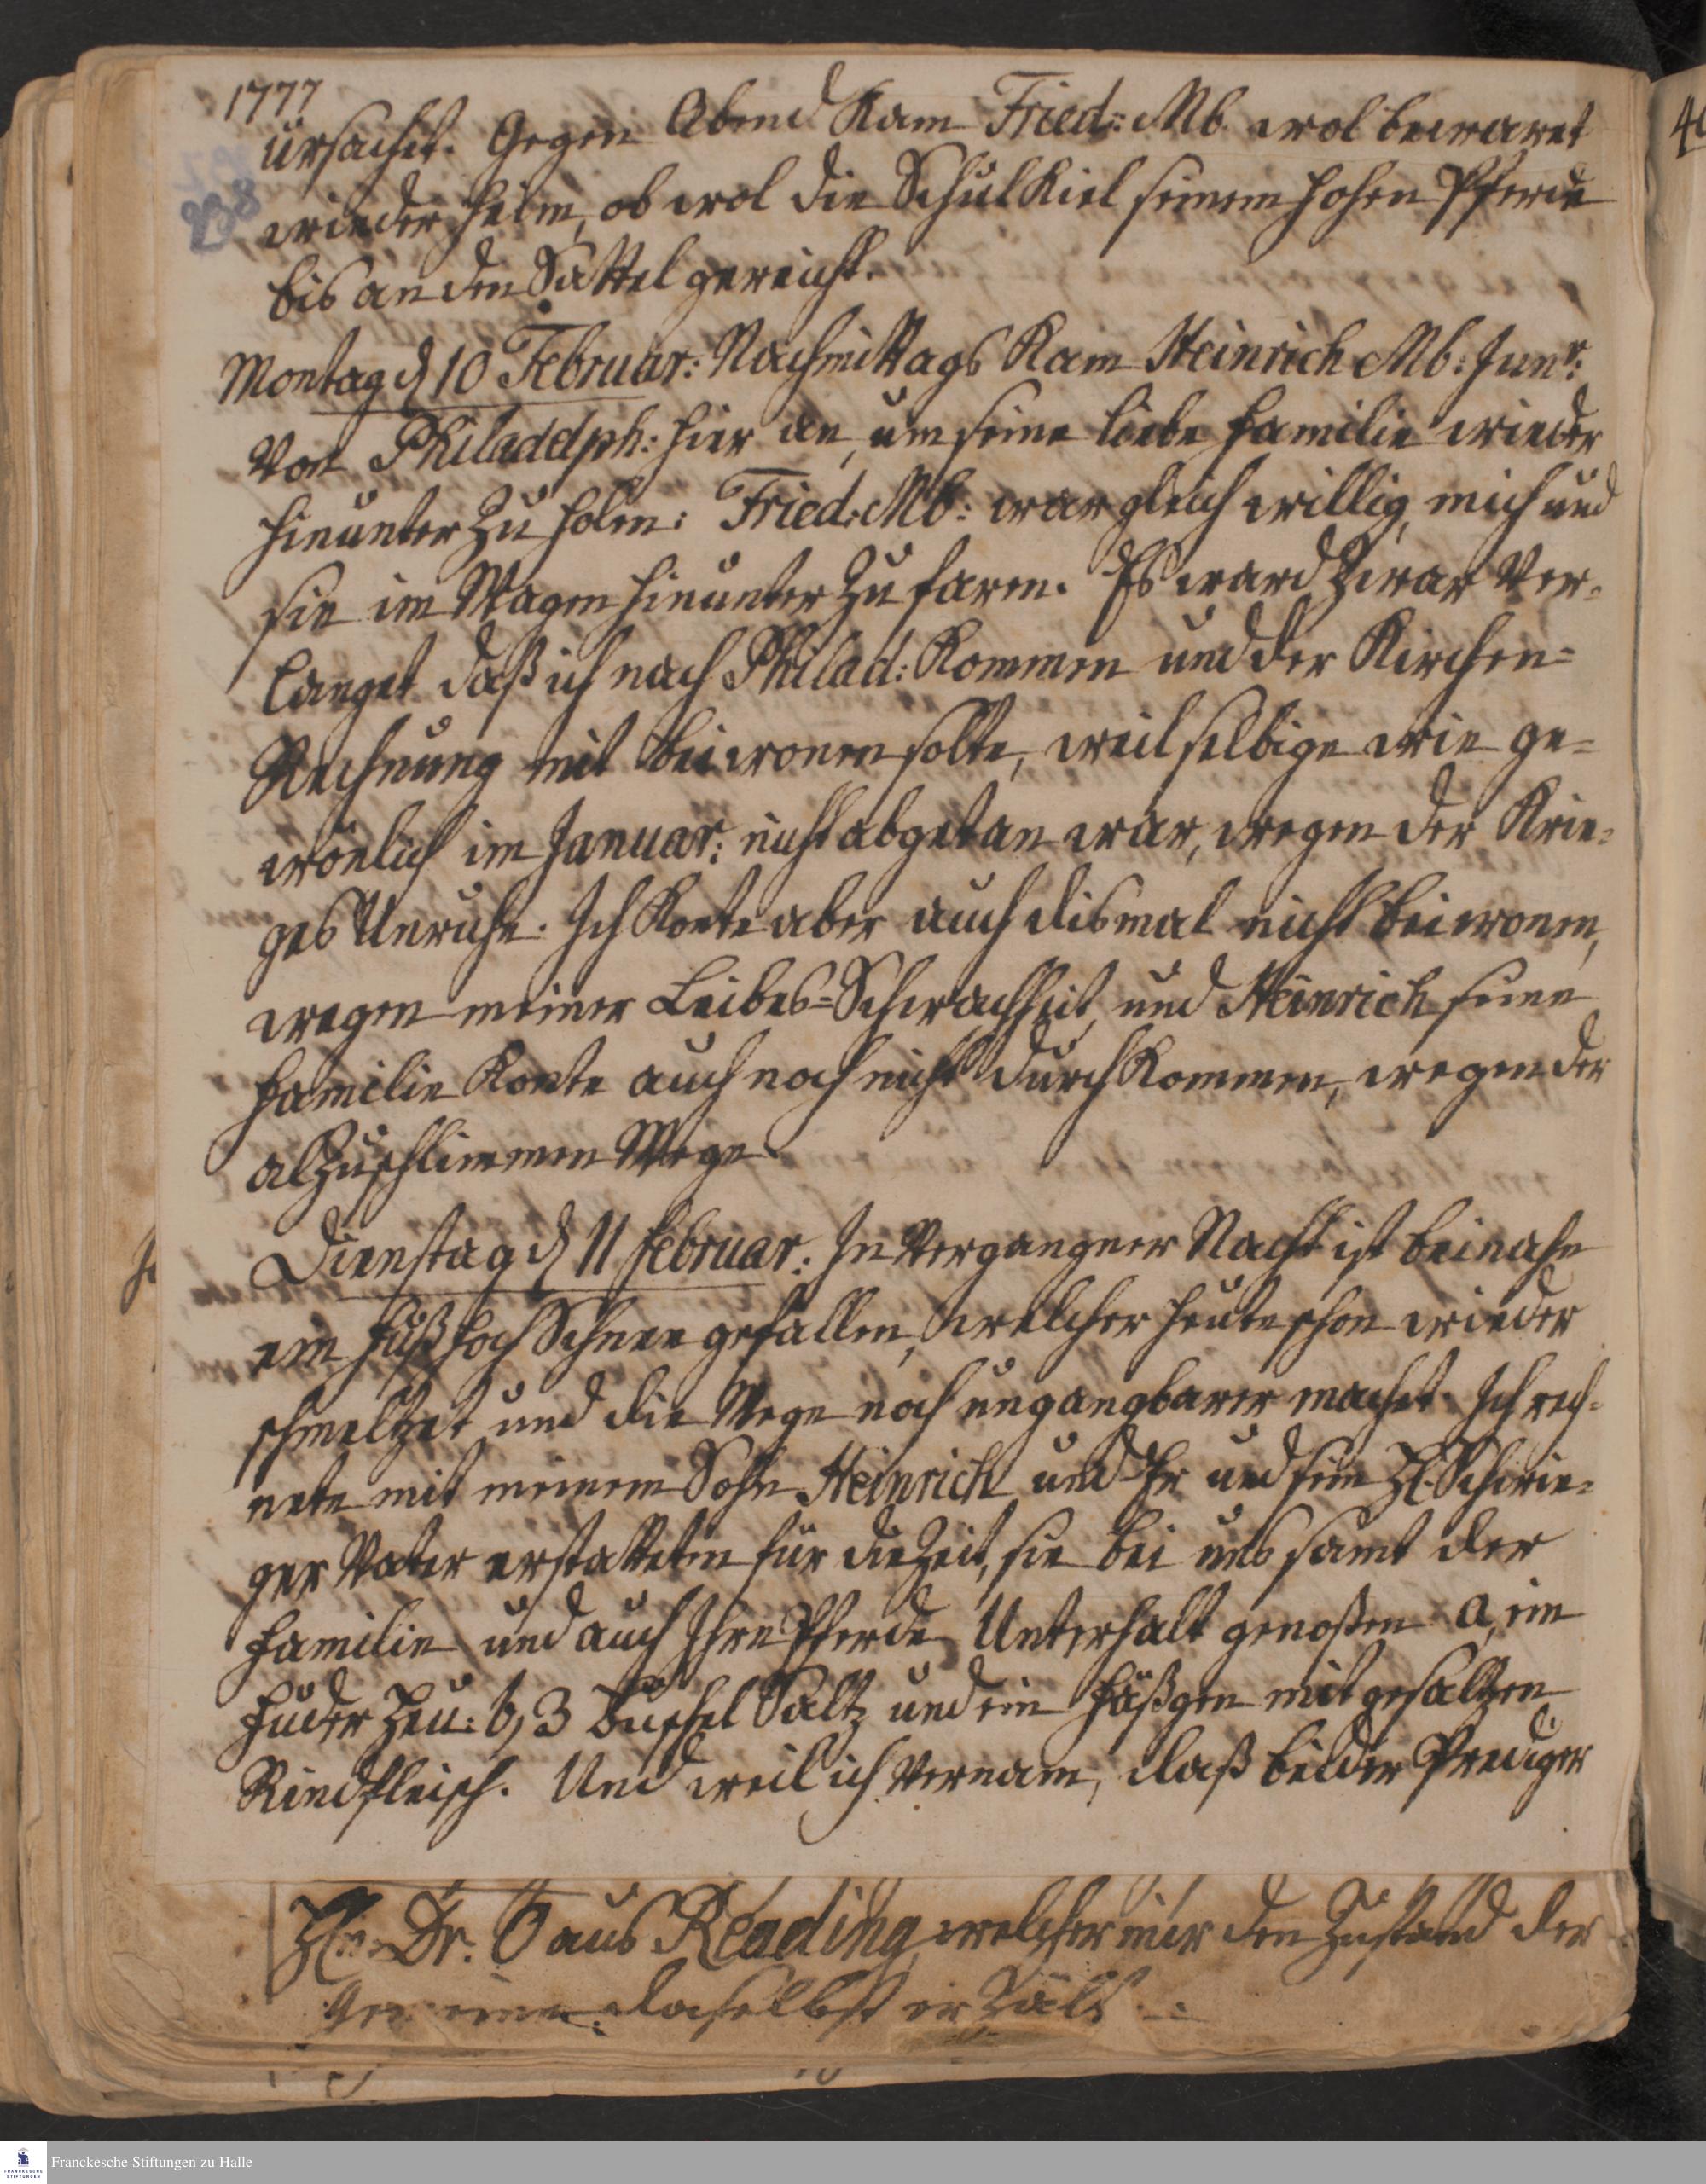 1777
ursachet. Gegen Abend kam Fried: Mb. wol bewaret
238
wieder heim, ob wol die Schulkiel seinem hohen Pferde
bis an den Sattel gereicht.
Montag d 10 Februar: Nachmittags kam Heinrich Mb: Junr:
von Philadelph: hier an, um seine liebe Familie wieder
hinunter zu holen: Fried: Mb: war gleich willig, mich und
sie im Wagen hinunter zu faren. Es ward zwar ver-
langet daß ich nach Philad: kommen und der Kirchen=
Rechnung mit beiwonen solte, weil selbige wie ge=
wönlich im Januar: nicht abgetan war, wegen der Krie-
ges Unruhe. Ich konte aber auch dismal nicht beiwonen,
wegen meiner Leibes=Schwachheit, und Heinrich seine
Familie konte auch noch nicht durchkommen, wegen der
alzuschlimmen Wege.
Dienstag d 11 Februar: In vergangner Nacht ist beinahe
ein Fuß hoch Schnee gefallen, welcher heute schon wieder
schmeltzet und die Wege noch ungangbarer machet. Ich rech-
nete mit meinem Sohn Heinrich und Er und sein H. Schwie-
ger Vater erstatteten für die Zeit, sie bei uns samt der
Familie und auch Ihre Pferde Unterhalt genoßen a, ein
Fuder Heu: b, 3 Buschel Saltz und ein Fäßgen mit gesaltzen
Rindfleisch. Und weil ich vernam, daß beider Prediger
Hn Dr. O aus Reading, welcher mir den Zustand der
Gemeine daselbst erzält.
Franckesche Stiftungen zu Halle